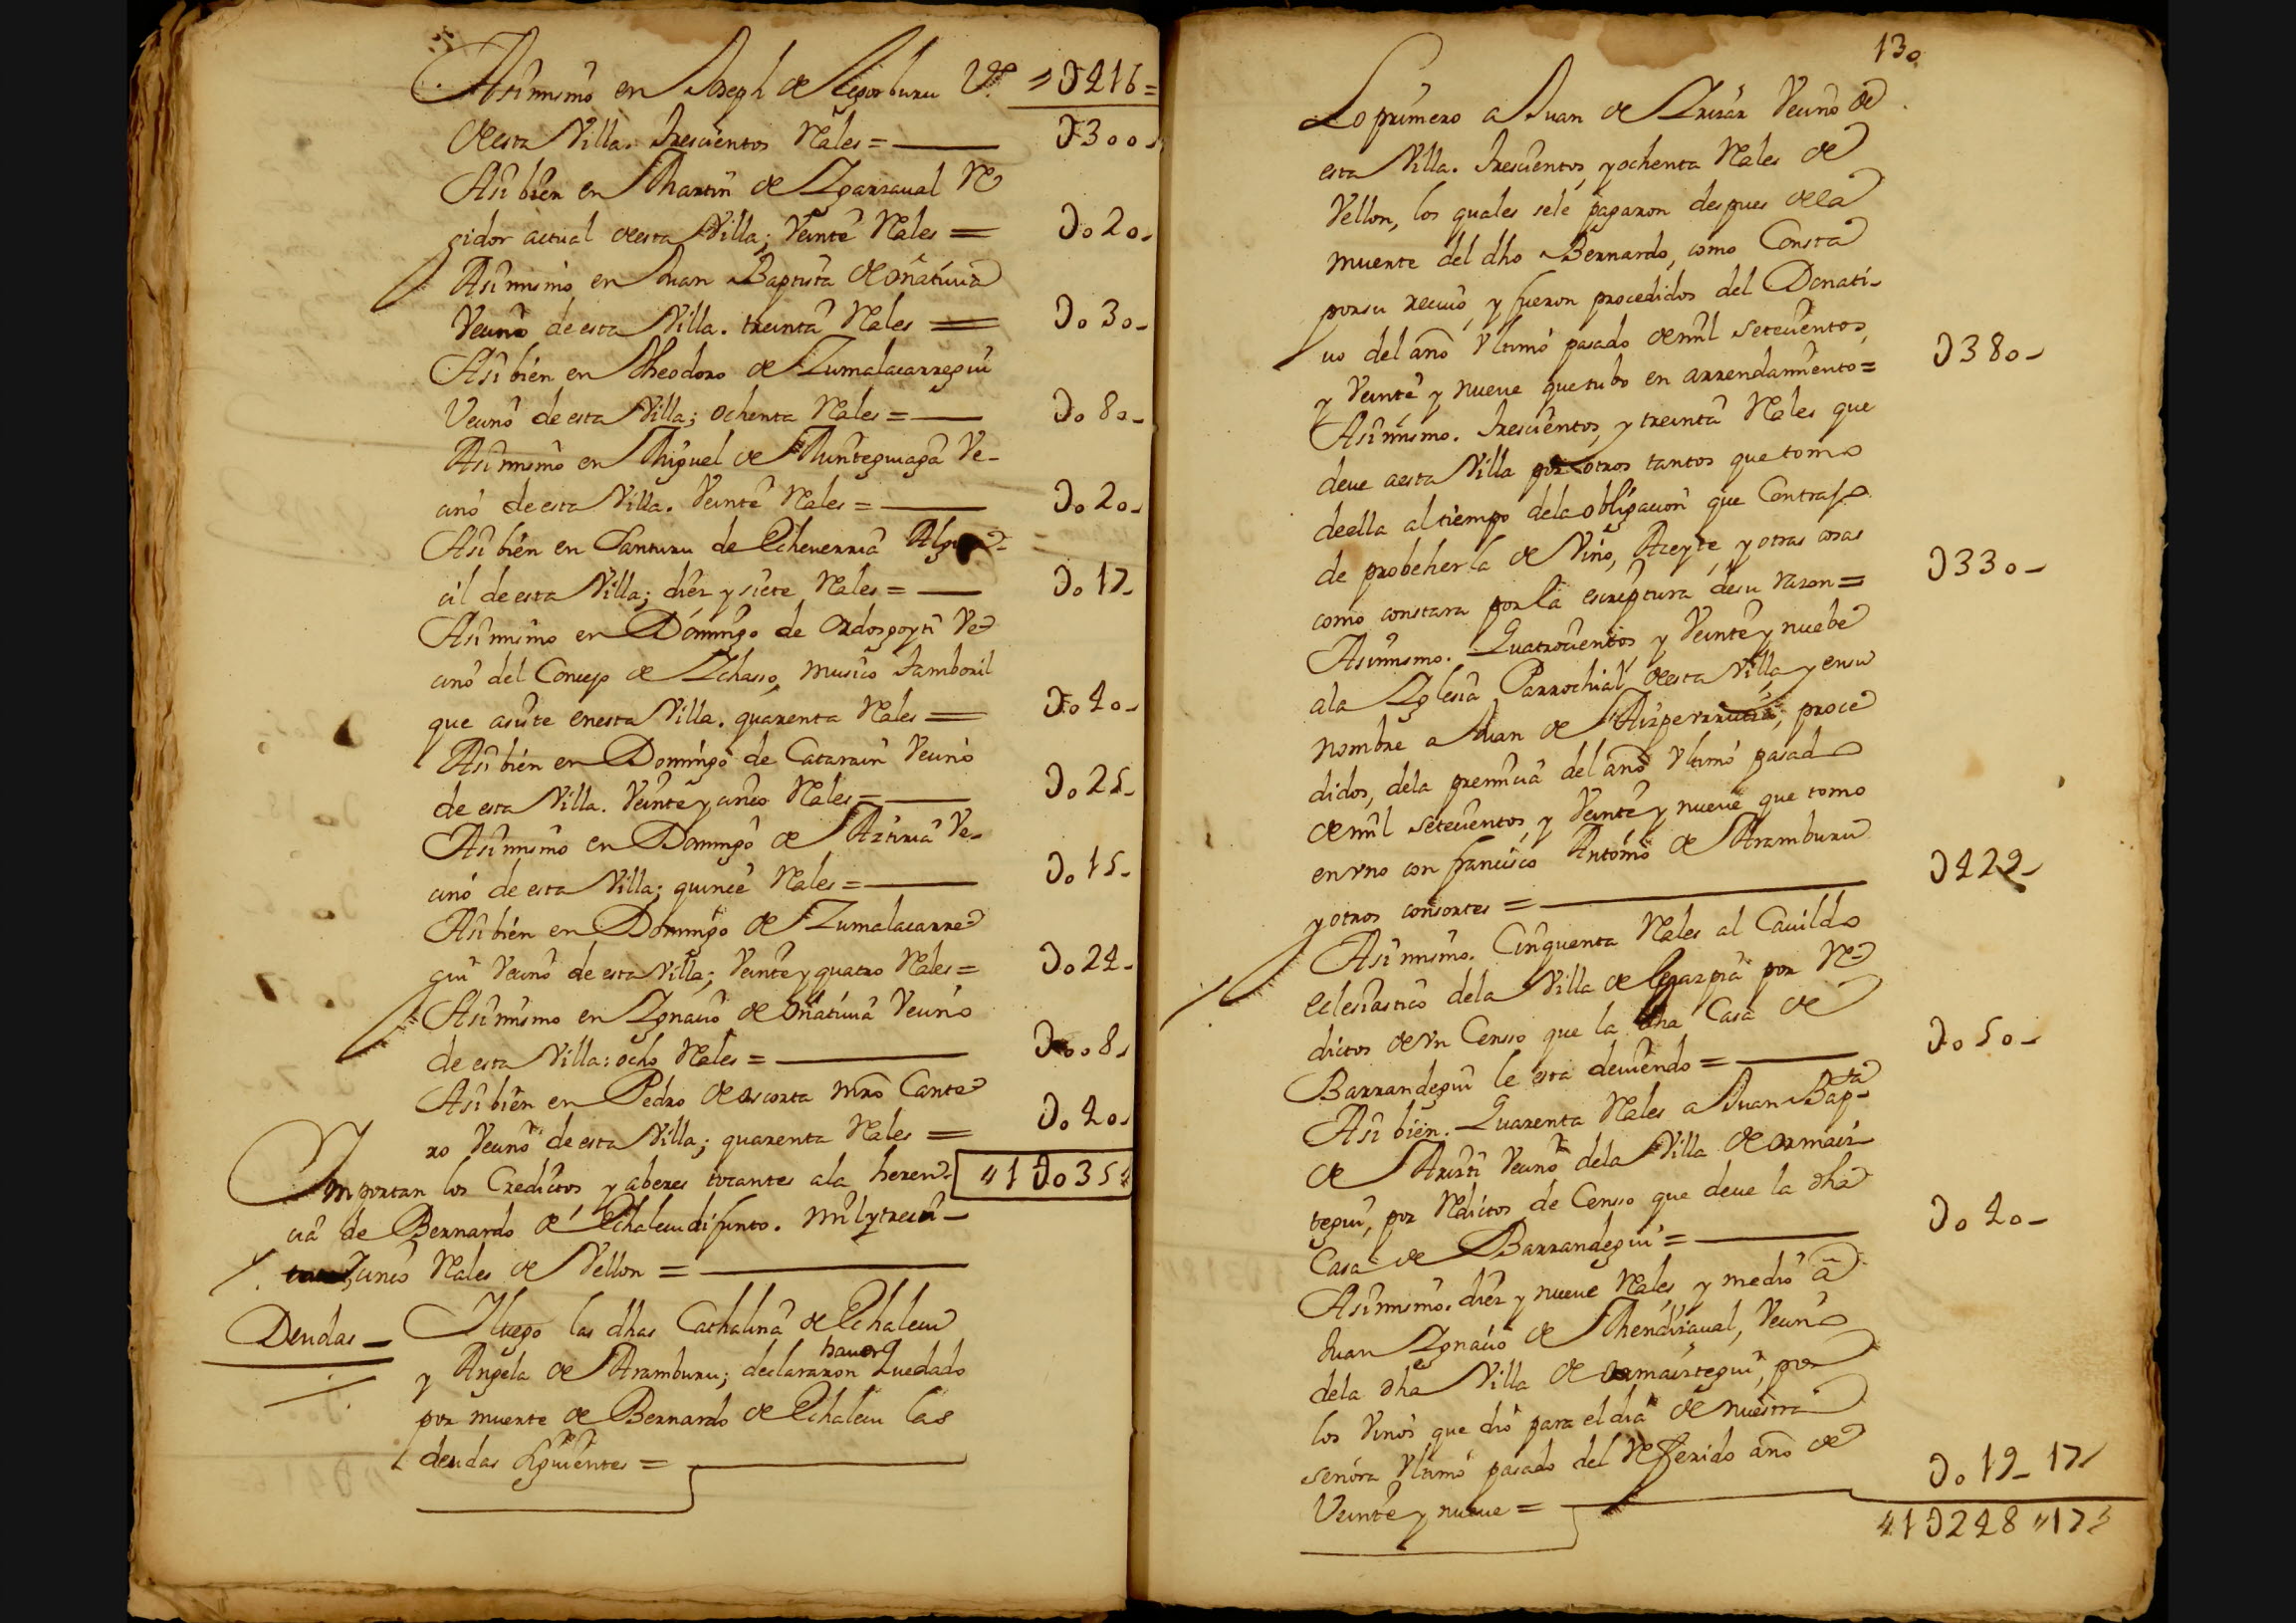 Asimismo en Joseph de Legorburu Vº "D416=
de esta Villa. Trescientos Rales = D300-
Asi bien en Martin de Ygarzaval Re
gidor actual de esta Villa; Veinte Rales = Do20-
Asimismo en Juan Baptista de oñativia
Vecino de esta Villa. treinta Rales = Do30-
Asi bien en Theodoro de Zumalacarregui
Vecino de esta Villa; ochenta Rales = Do80-
Asimismo en Miguel de Ve-
cino de esta Villa. Veinte Rales = Do20-
Asi bien en Santuru de Echeverria
cil de esta Villa; diez y siete Rales = Do17-
Asimismo en Domingo de Ve
cino del Concejo de Ychasso, musico tamboril
que asiste en esta Villa. quarenta Rales = Do40-
Asi bien en Domingo de Catarain Vecino
de esta Villa. Veinte y cinco Rales = Do25-
Asimismo en Domingo de Aztiria Ve-
cino de esta Villa; quince Rales = Do15-
Asi bien en Domingo de Zumalacarre
gui Vecino de esta Villa; Veinte y quatro Rales = Do24-
Asimismo en Ygnacio de oñativia Vecino
de esta Villa: ocho Rales = Doo8-
Asi bien en Pedro de ascorta mro Cante
ro Vecino de esta Villa; quarenta Rales = Do40-
Importan los Creditos y aberes tocantes ala heren- "1Do35
cia de Bernardo de Echalecu difunto. Mil y trein-
cinco Rales de Vellon =
Deudas - Yluego las dhas Cathalina de Echalecu
haver
y Angela de Aramburu; declararon quedado
por muerte de Bernardo de Echalecu las
deudas siguientes =
130
Lo primero a Juan de Yrizar Vecino de
esta Villa. Trescientos, y ochenta Rales de
Vellon, los quales sele pagaron despues dela
muerte del dho Bernardo, como Consta
por su recivo, y fueron procedidos del Donati-
vo del año Vltimo pasado de mil setecientos,
y Veinte y nueve que tubo en arrendamiento = D380-
Asimismo. Trescientos, y treinta Rales que
deve a esta Villa por otros tantos que tomo
de ella al tiempo dela obligacion que Contrajo
de probeherla de Vino, Azeyte, y otras cosas
como constara por la escriptura de su razon = D330-
Asimismo. Quatrocientos y Veinte y nuebe
ala Yglesia Parrochial de esta Villa, y en su
nombre a Juan de proce
didos, dela premicia del año Vltimo pasado
de mil setecientos, y Veinte y nueve que tomo
en vno con francisco Antonio de Aramburu
y otros consortes = D429-
Asimismo. Cinquenta Rales al Cavildo
Eclesiastico dela Villa de Legazpia por Re
ditos de Vn Censso que la dha Casa de
Barrandegui le esta deviendo = Do50-
Asi bien. Quarenta Rales a Juan Bapta
de Aristi Vecino dela Villa de ormaiz
tegui, por Reditos de Censo que deve la dha
Casa de Barrandegui = Do40-
Asimismo. diez y nueve Rales, y medio â
Juan Ygnacio de Mendizaval, Vecino
dela dha Villa de ormaiztegui, por
los Vinos que dio para el dia de nuestra
señora Vltimo pasado del Referido año de
Veinte y nueve = Do19-17
"1D248"17